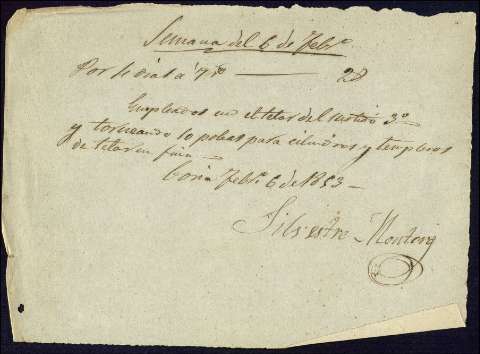 Semana del 6 de Febro
Por 4 dias a 7 rs — 28
Empleados en el telar del surtido 3o
y torneando 10 para cilindros y templeros
de telar en fina
Coria Febro 6 de 1853
Silvestre Montero